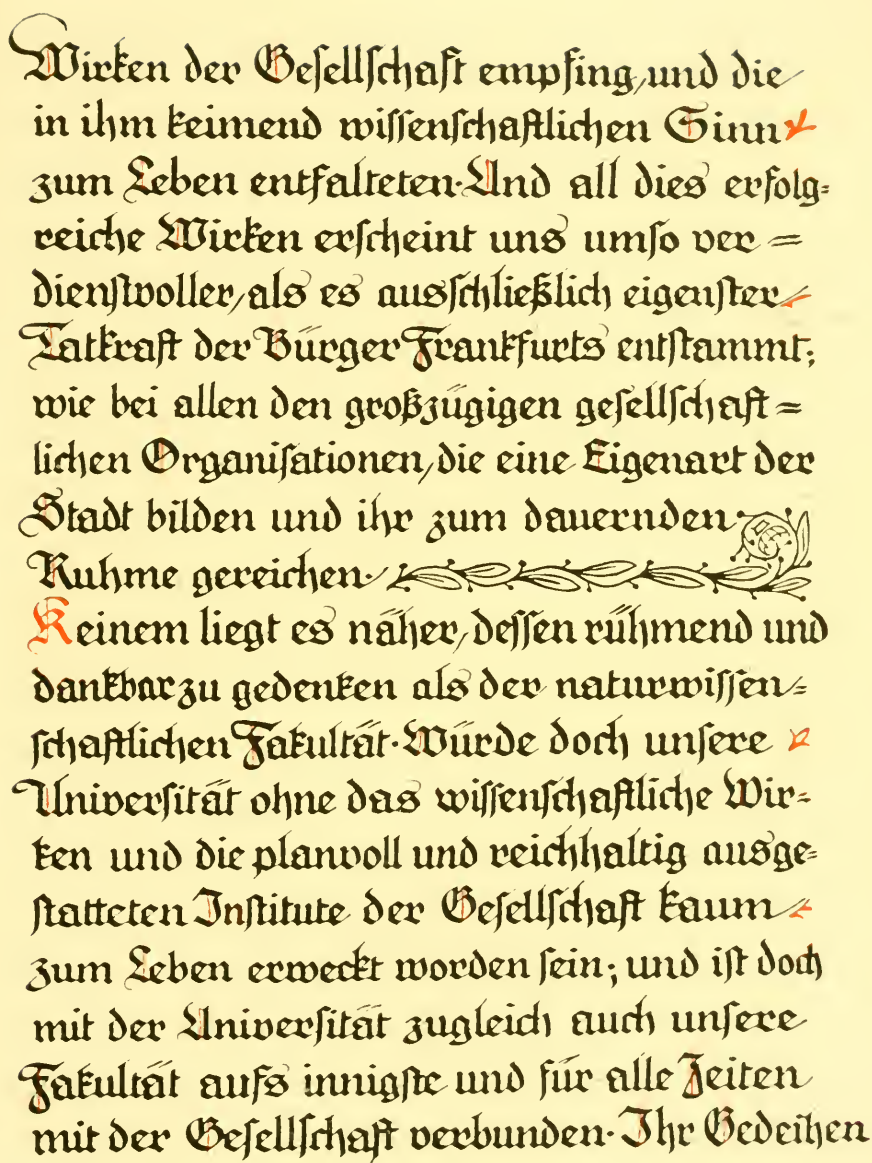 Wirken der Gesellschaft empfing, und die
in ihm keimend wissenschaftlichen Sinn
zum Leben entfalteten. Und all dies erfolg=
reiche Wirken erscheint uns umso ver=
dienstvoller, als es ausschließlich eigenster
Tatkraft der Bürger Frankfurts entstammt;
wie bei allen den großzügigen gesellschaft=
lichen Organisationen, die eine Eigenart der
Stadt bilden und ihr zum dauernden
Ruhme gereichen.
Keinem liegt es näher, dessen rühmend und
dankbar zu gedenken als der naturwissen=
schaftlichen Fakultät. Würde doch unsere
Universität ohne das wissenschaftliche Wir=
ken und die planvoll und reichhaltig ausge=
statteten Institute der Gesellschaft kaum
zum Leben erweckt worden sein; und ist doch
mit der Universität zugleich auch unsere
Fakultät aufs innigste und für alle Zeiten
mit der Gesellschaft verbunden. Ihr Gedeihen